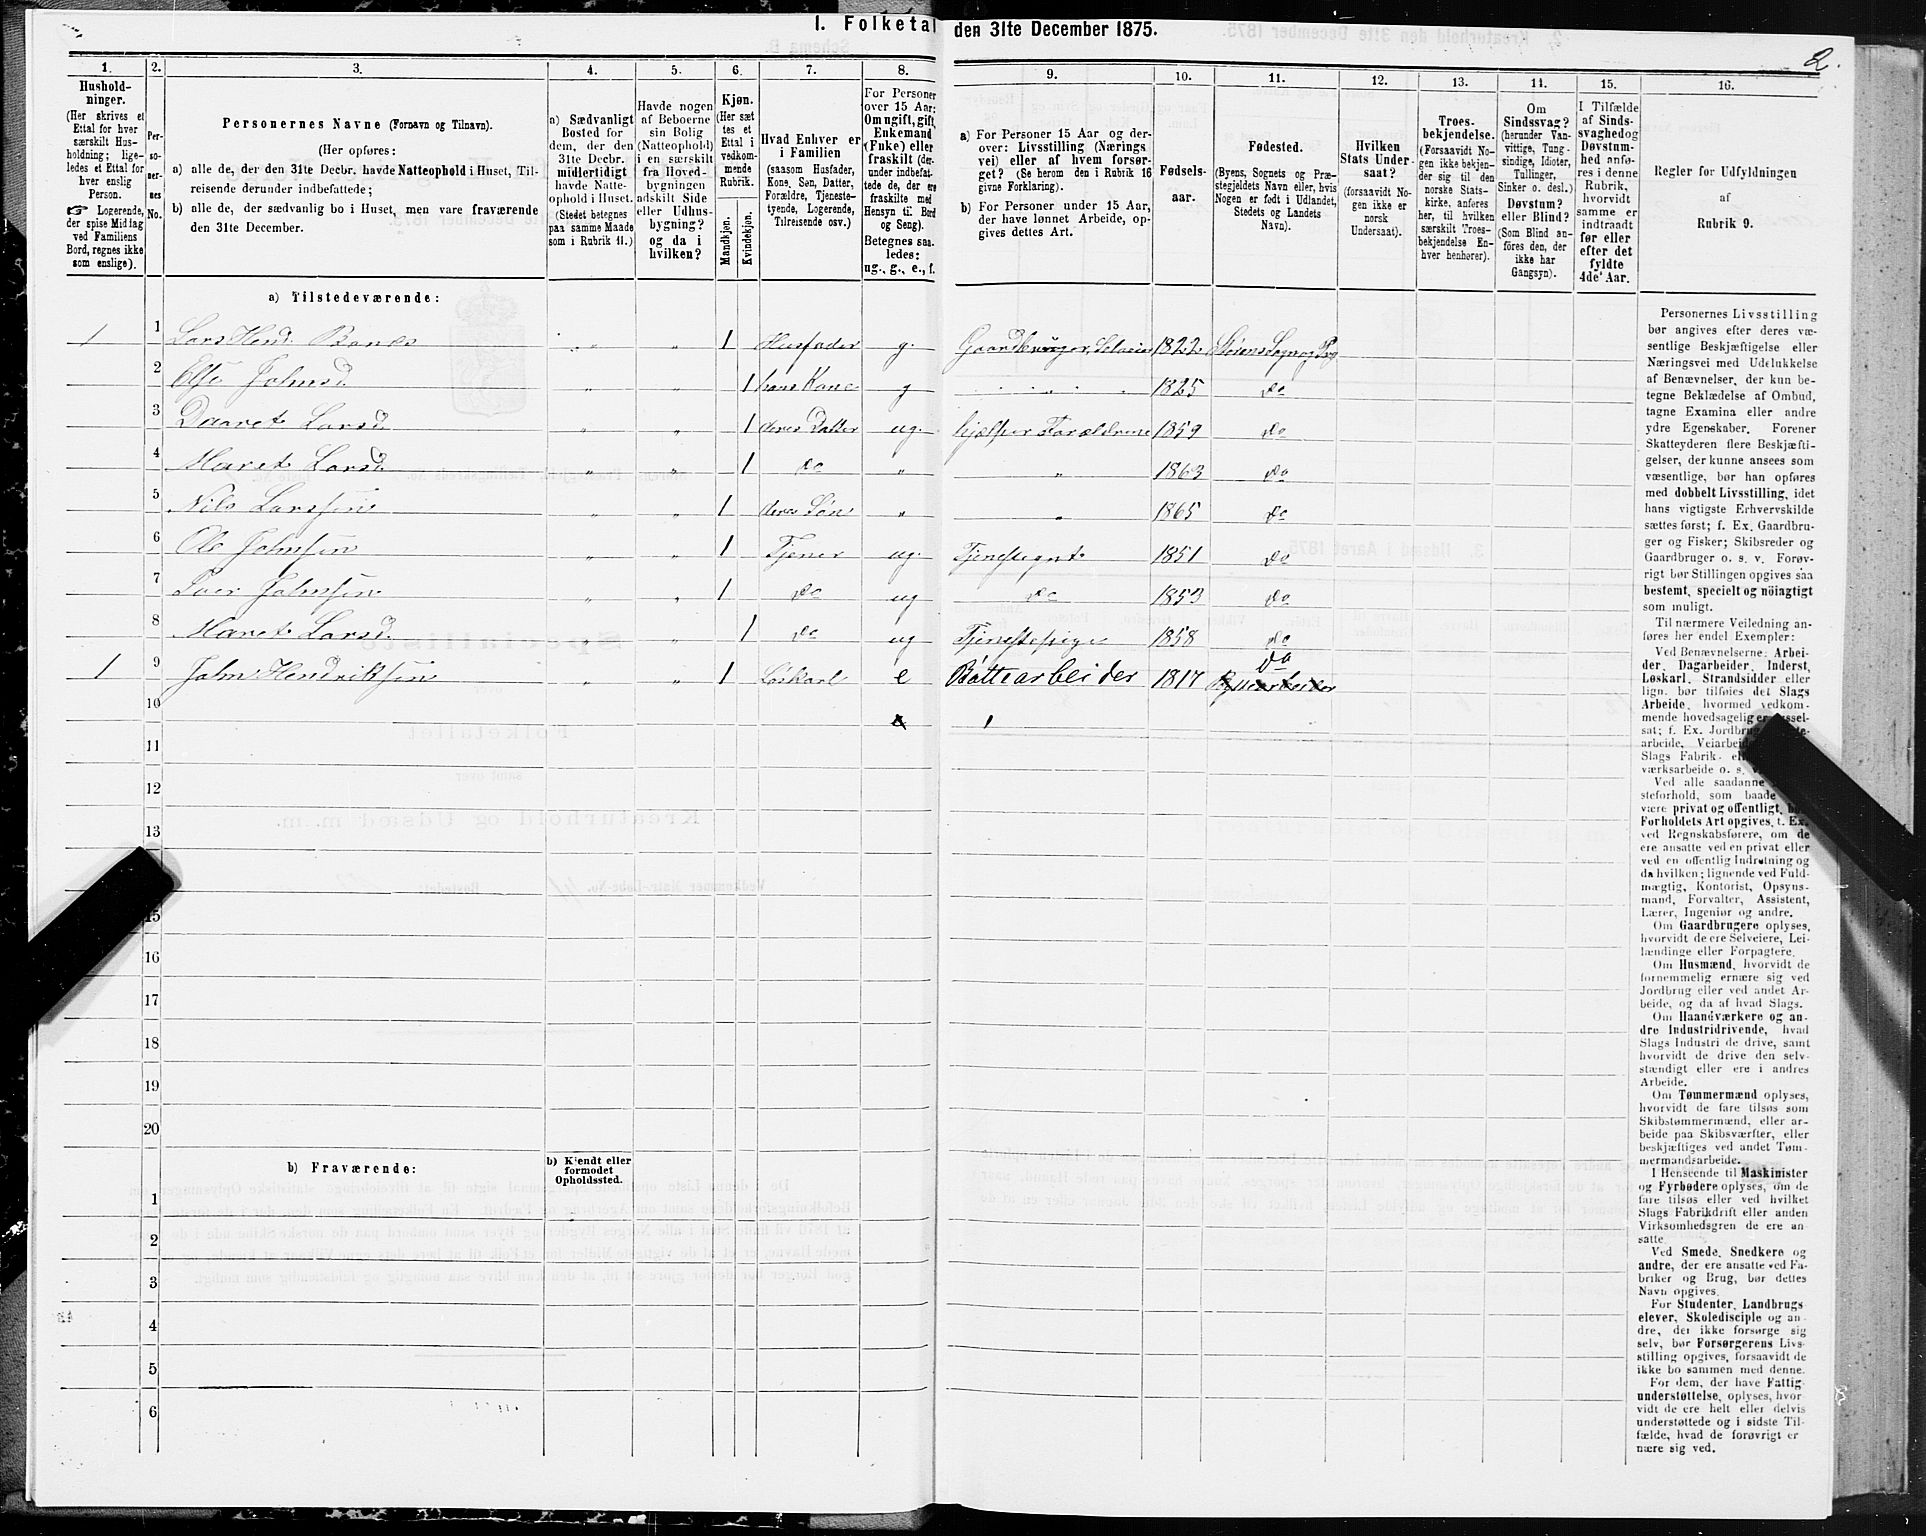 1. Folketal den 31te December 1875.
2.
1. 2. 3. 4. 5. 6. 7. 8. 9. 10. 11. 12. 13. 14. 15. 16.
Hushold-
ninger.
(Her skrives et
Ettal for hver
særskilt Hus-
holdning; lige-
ledes et Ettal for
hver enslig
Person.
☞ Logerende,
der spise Middag
ved Familiens
Bord, regnes ikke
som enslige).
Per-
so-
ner-
nes
No.
Personernes Navne (Fornavn og Tilnavn).
(Her opføres:
a) alle de, der den 31te Decbr. havde Natteophold i Huset, Til-
reisende derunder indbefattede;
b) alle de, der sædvanlig bo i Huset, men vare fraværende
den 31te December.
a) Sædvanligt
Bosted for
dem, der den
31te Decbr.
midlertidigt
havde Natte-
ophold i Huset.
(Stedet betegnes
paa samme Maade
som i Rubrik 11.)
Havde nogen
af Beboerne
sin Bolig
(Natteophold)
i en særskilt
fra Hoved-
bygningen
adskilt Side
eller Udhus-
bygning?
og da i
hvilken?
Kjøn.
(Her sæt
tes et
Ettal i
vedkom-
mende
Rubrik.
Mandkjøn.
Kvindekjøn.
Hvad Enhver er
i Familien
(saasom Husfader,
Kone, Søn, Datter,
Forældre, Tjeneste-
tyende, Logerende,
Tilreisende osv.)
For Personer
over 15 Aar:
Om ugift, gift,
Enkemand
(Enke) eller
fraskilt (der-
under indbefat-
tede de, der ere
fraskilte med
Hensyn til Bord
og Seng).
Betegnes saa-
ledes:
ug., g., e., f.
a) For Personer 15 Aar og der-
over: Livsstilling (Nærings
vei) eller af hvem forsør-
get? (Se herom den i Rubrik 16
givne Forklaring).
b) For Personer under 15 Aar,
der have lønnet Arbeide, op-
gives dettes Art.
Fødsels-
aar.
Fødested.
(Byens, Sognets og Præ-
stegjeldets Navn eller, hvis
Nogen er født i Udlandet,
Stedets og Landets
Navn).
Hvilken
Stats Under-
saat?
(forsaavidt No-
gen ikke er
norsk
Undersaat).
Troes-
bekjendelse.
(Forsaavidt No-
gen ikke bekjen-
der sig til den
norske Stats-
kirke, anføres
her, til hvilken
særskilt Troes-
bekjendelse En-
hver henhører).
Om
Sindssvag?
(herunder Van-
vittige, Tung-
sindige, Idioter,
Tullinger,
Sinker o. desl.)
Døvstum?
eller Blind?
(Som Blind an-
føres den, der
ikke har
Gangsyn).
I Tilfælde
af Sinds-
svaghed og
Døvstum-
hed anfø-
res i denne
Rubrik,
hvorvidt
samme er
indtraadt
før eller
efter det
fyldte
4de Aar.
Regler for Udfyldningen
af
Rubrik 9.
a) Tilstedeværende:
1 1 Lars Hend. Bones " " 1 Husfader g. Gaardbruger, Selveier 1822 Størens Sogn og Prg
2 Else Johnsd " " 1 hans Kone g " " " 1825 do
3 Daaret Larsd " " 1 deres Datter ug. hjælper Forældrene 1859 do
4 Maret Larsd " " 1 do " " 1863 do
5 Nils Larssen " " 1 deres Søn " " 1865 do
6 Ole Johnsen " " 1 Tjener ug. Tjenestegut 1851 do
7 Iver Johnsen " " 1 do ug do 1853 do
8 Maret Larsd " " 1 do ug Tjenestepige 1858 do
1 9 John Hendriksen " " 1 Løskarl e Bøttearbeider 1817 do
10
11
12
13
15
16
17
18
19
20
b) Fraværende:
b) Kjendt eller
formodet
Opholdssted.
1
2
3
4
5
6
Personernes Livsstilling
bør angives efter deres væ-
sentlige Beskjæftigelse eller
Næringsvei med Udelukkelse
af Benævnelser, der kun be-
tegne Beklædelse af Ombud,
tagne Examina eller andre
ydre Egenskaber. Forener
Skatteyderen flere Beskjæfti-
gelser, der kunne ansees som
væsentlige, bør han opføres
med dobbelt Livsstilling, idet
hans vigtigste Erhvervskilde
sættes først; f. Ex. Gaardbru-
ger og Fisker; Skibsreder og
Gaardbruger o. s. v. Forøv-
rigt bør Stillingen opgives saa
bestemt, specielt og nöiagtigt
som muligt.
Til nærmere Veiledning an-
føres her endel Exempler:
Ved Benævnelserne: Arbei-
der, Dagarbeider, Inderst,
Løskarl, Strandsidder eller
lign. bør tilføies det Slags
Arbeide, hvormed vedkom-
mende hovedsagelig er syssel-
sat; f. Ex. Jordbrug,
arbeide, Veiarbeide
Slags Fabrik- el
værksarbeide o. s.
Ved alle saadanne
steforhold, som baade
være privat og offentligt, bør
Forholdets Art opgives, t. Ex.
ved Regnskabsførere, om de
ere ansatte ved en privat eller
ved en offentlig Indretning og
da hvilken; lignende ved Fuld-
mægtig, Kontorist, Opsyns-
mand, Forvalter, Assistent,
Lærer, Ingeniør og andre.
Om Gaardbrugere oplyses,
hvorvidt de ere Selveiere, Lei-
lændinge eller Forpagtere.
Om Husmænd, hvorvidt de
fornemmelig ernære sig ved
Jordbrug eller ved andet Ar-
beide, og da af hvad Slags.
Om Haandværkere og an-
dre Industridrivende, hvad
Slags Industri de drive, samt
hvorvidt de drive den selv-
stændigt eller ere i andres
Arbeide.
Om Tømmermænd oplyses,
hvorvidt de fare tilsøs som
Skibstømmermænd, eller ar-
beide paa Skibsværfter, eller
beskjæftiges ved andet Tøm-
mermandsarbeide.
I Henseende til Maskinister
og Fyrbødere oplyses, om de
fare tilsøs eller ved hvilket
Slags Fabrikdrift eller anden
Virksomhedsgren de ere an-
satte.
Ved Smede, Snedkere og
andre, der ere ansatte ved Fa-
briker og Brug, bør dettes
Navn opgives.
For Studenter, Landbrugs
elever, Skoledisciple og an-
dre, der ikke forsørge sig
selv, bør Forsørgerens Livs-
stilling opgives, forsaavidt de
ikke bo sammen med denne.
For dem, der have Fattig-
understøttelse, oplyses, hvor-
vidt de ere helt eller delvis
understøttede og i sidste Til-
fælde, hvad de forøvrigt er-
nære sig ved.